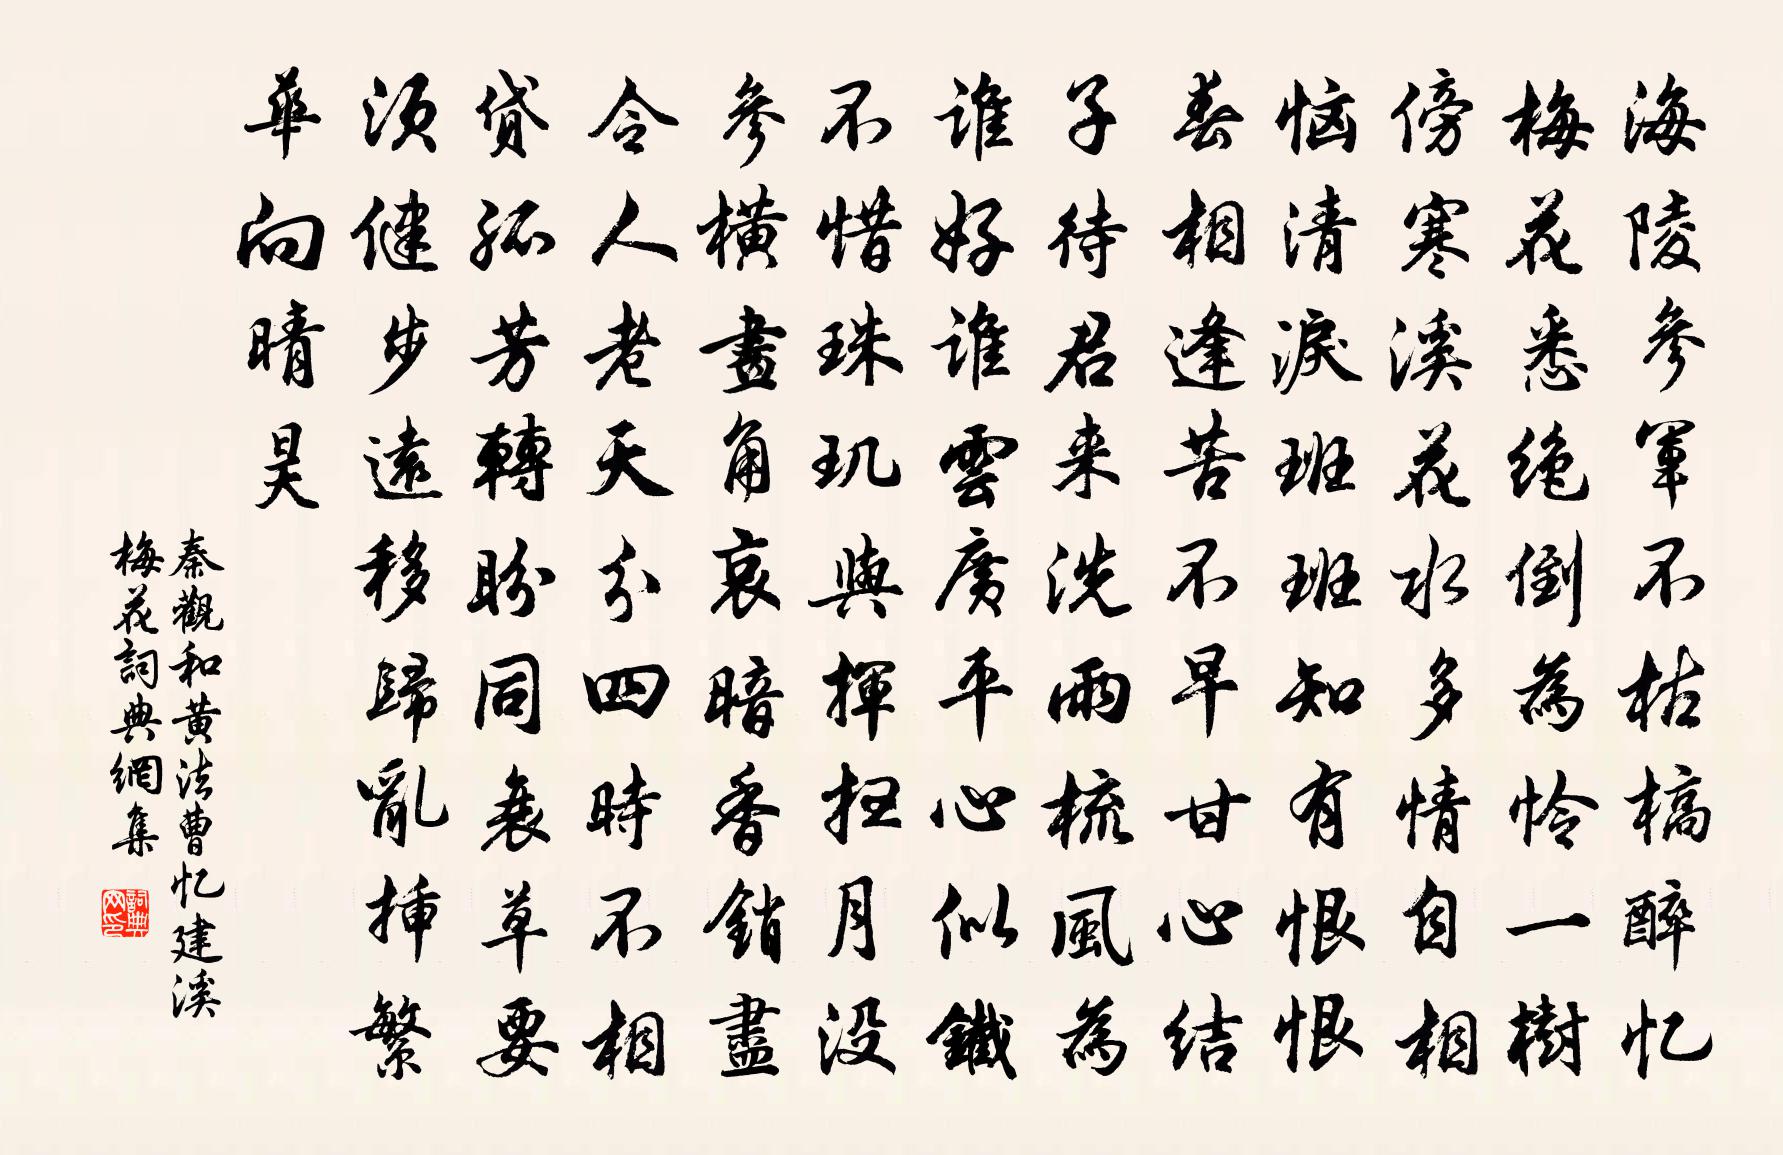 海陵參軍不枯槁醉忆
梅花悉绝倒為怜一樹
傍寒溪花水多情自相
恼清淚班班知有恨恨
春相逢苦不早甘心结
子待君来洗雨梳風為
誰好誰雲廣平心似鐵
不惜珠玑與揮扫月没
參橫畫角哀暗香銷盡
令人老天分四時不相
貸孤芳轉盼同衰草要
須健步遠移歸亂插繁
華向晴昊
秦觀和黄法曹忆建溪
梅花詞典網集
詞典网印